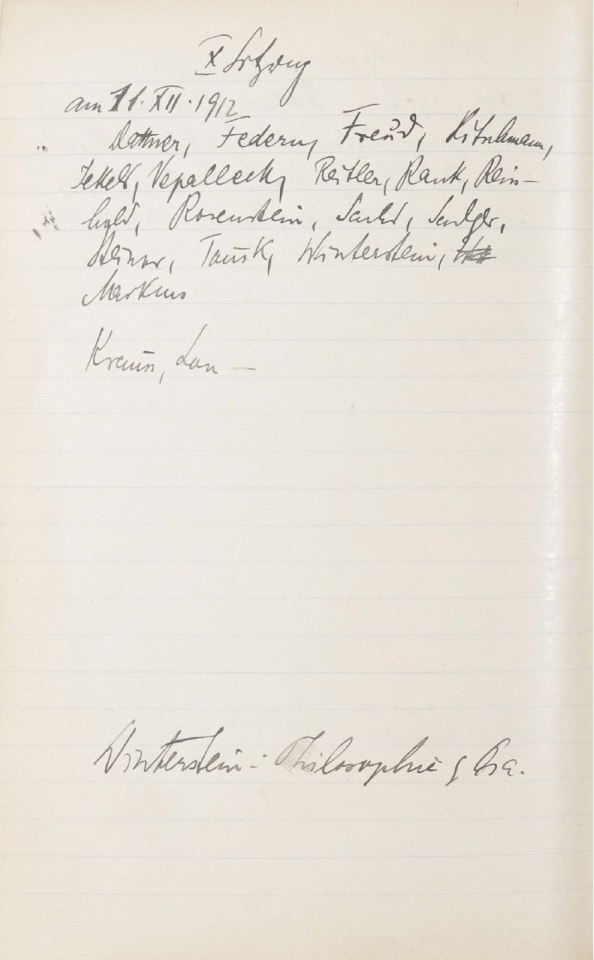 X Sitzung
am 11. XII. 1912
Dattner, Federn, Freud, Hitschmann,
Jekels, Nepalleck, Reitler, Rank, Rein-
hold, Rosenstein, Sachs, Sadger,
Steiner, Tausk, Winterstein,
Markus
Krauss,
Winterstein: Philosophie